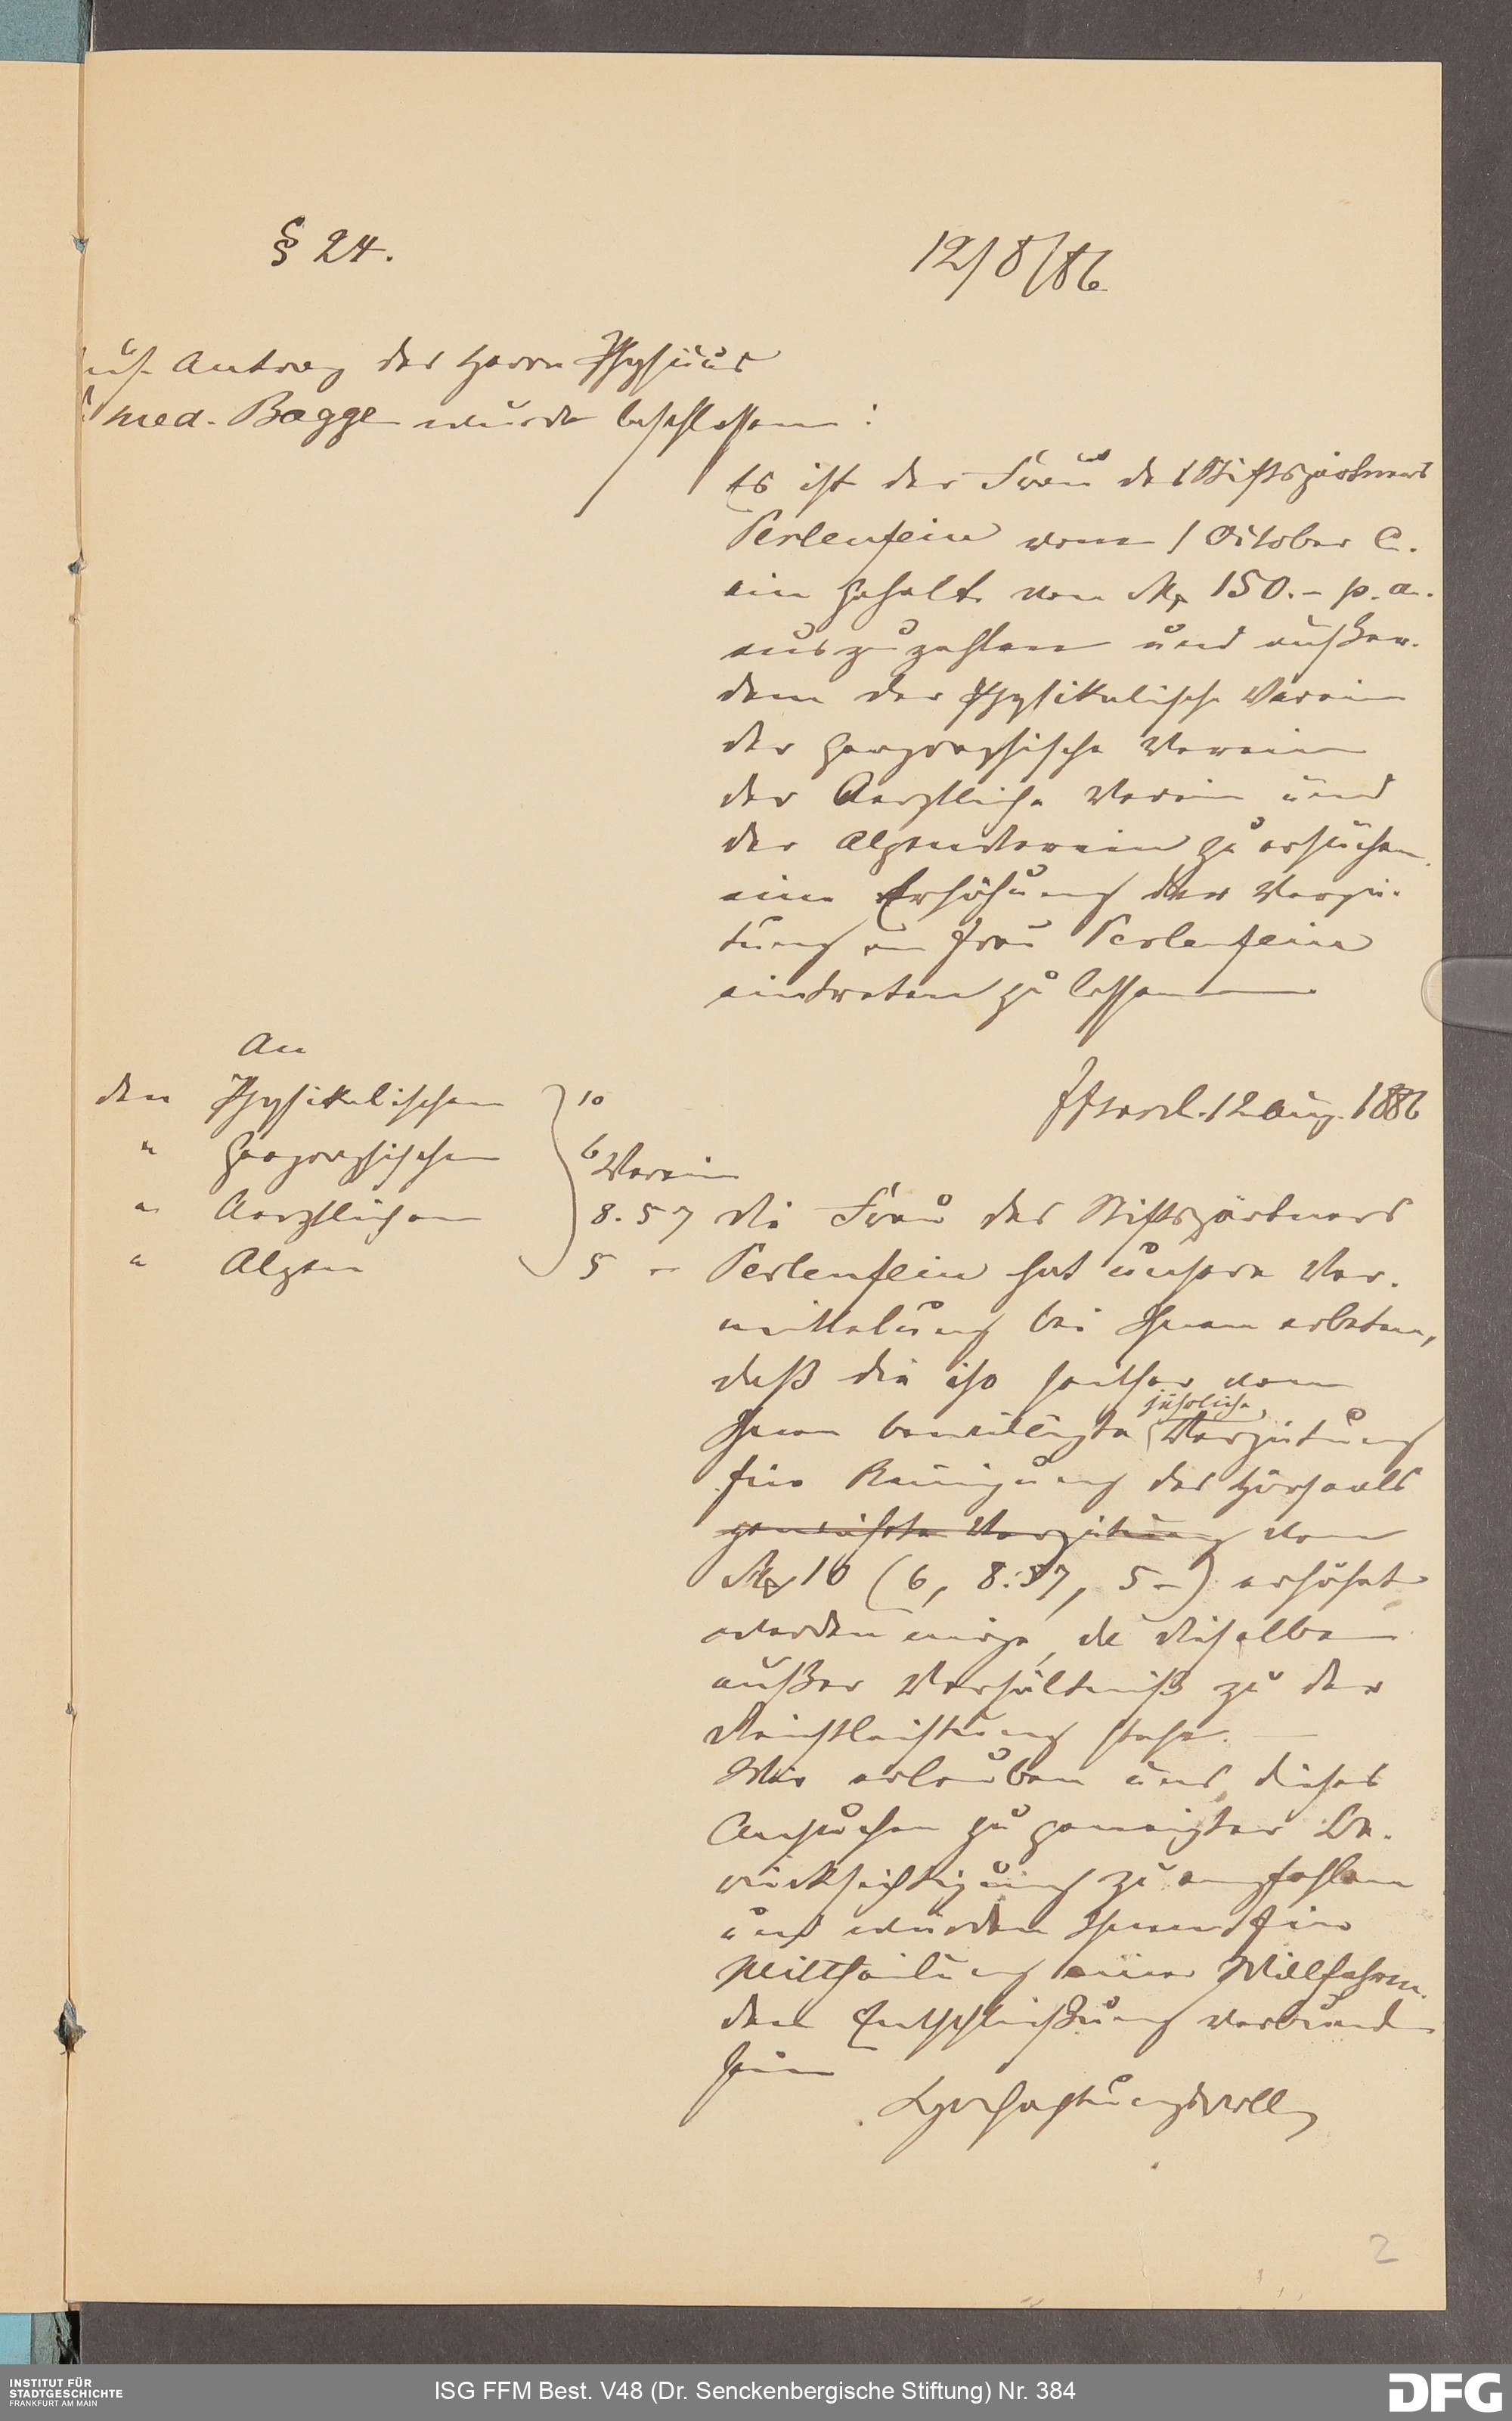 § 24.
12/8/86
auf Antrag des Herrn Physicus
Dr med. Bagge wurde beschlossen:
Es ist der Frau des Stiftsgärtners
Perlenfein vom 1 October c.
ein Gehalt von M 150.- p. a.
auszuzahlen und außer-
dem der Physikalische Verein
der Geographische Verein
der Aerztliche Verein und
der Alpenverein zu ersuchen
eine Erhöhung der Vergü-
tung an Frau Perlenfein
eintreten zu lassen
An
den Physikalischen 10
" Geographischen 6
Verein
" Aerztlichen 8.57
" Alpen 5 -
12 Aug. 1886
Die Frau des Stiftsgärtners
Perlenfein hat unsere Ver-
mittelung bei Ihnen erbeten,
daß die ihr seither von
Ihnen bewilligte jährliche Vergütung
für Reinigung des Hörsaals
gewährte Vergütung von
M 10 (6, 8.57, 5-) erhöht
werden möge, da dieselbe
außer Verhältniß zu der
Dienstleistung stehe.
Wir erlauben uns dieses
Ansuchen zu geneigter Be-
rücksichtigung zu empfehlen
und würden Ihnen für
Mittheilung einer Willfahren-
den Entschließung verbunden
sein
Hochachtungsvoll
2
INSTITUT FÜR
STADTGESCHICHTE
FRANKFURT AM MAIN
ISG FFM Best. V48 (Dr. Senckenbergische Stiftung) Nr. 384
DFG